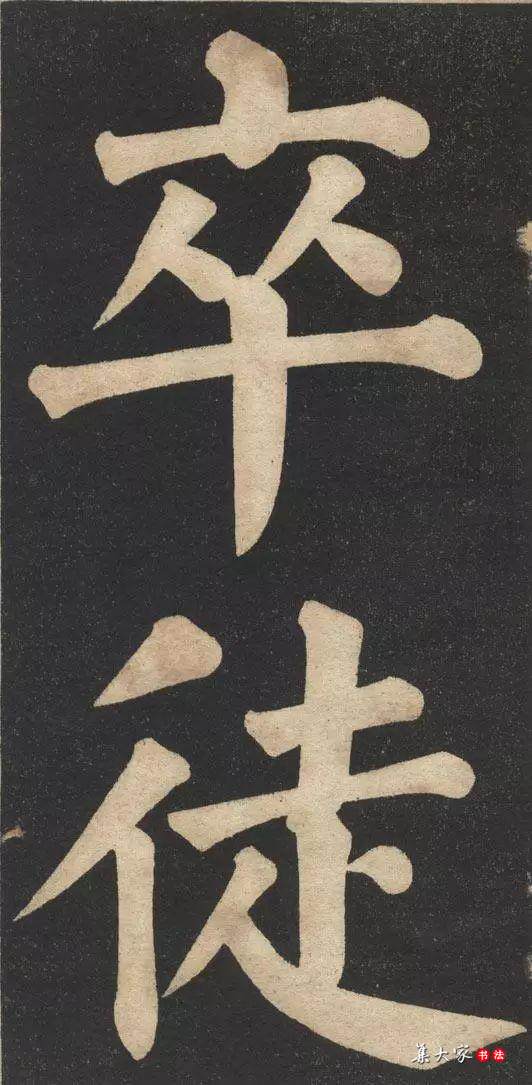 卒徒
集大家书法